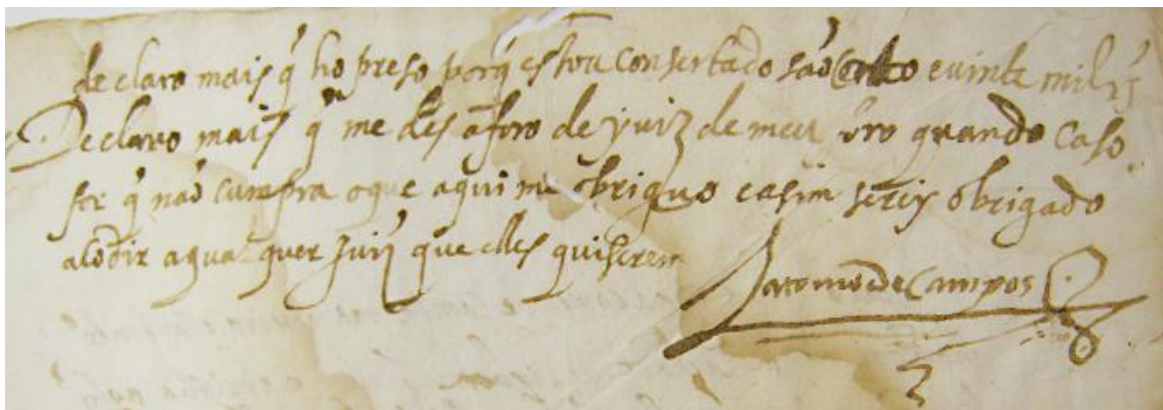 declaro mais q̃ ho preso porq̃ estou consertado são cento e vinte mil rs
Declaro mais q̃ me des aforo de yuiz de meu foro quando caso
for q̃ não cumpra o que aqui me obriguo e asim serey obrigado
acodir a qualquer juiz que elles quiserem
de Campos